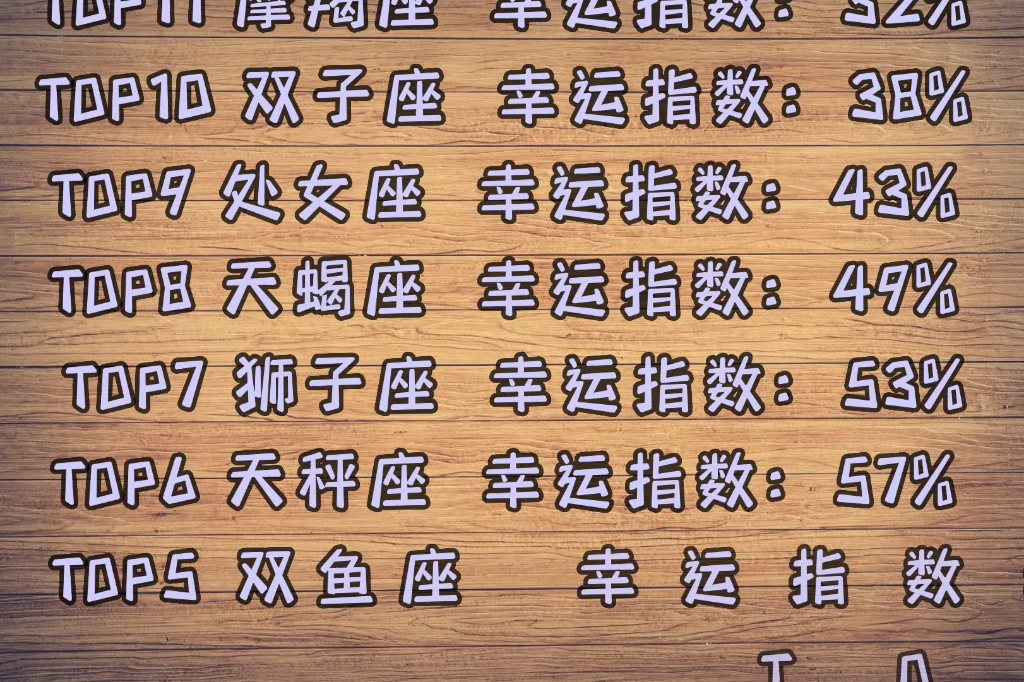 TOP11 摩羯座 幸运指数: 32%
TOP10 双子座 幸运指数: 38%
TOP9 处女座 幸运指数: 43%
TOP8 天蝎座 幸运指数: 49%
TOP7 狮子座 幸运指数: 53%
TOP6 天秤座 幸运指数: 57%
TOP5 双鱼座 幸运指数